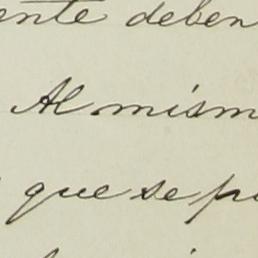 ente deben
Al mism
que se p